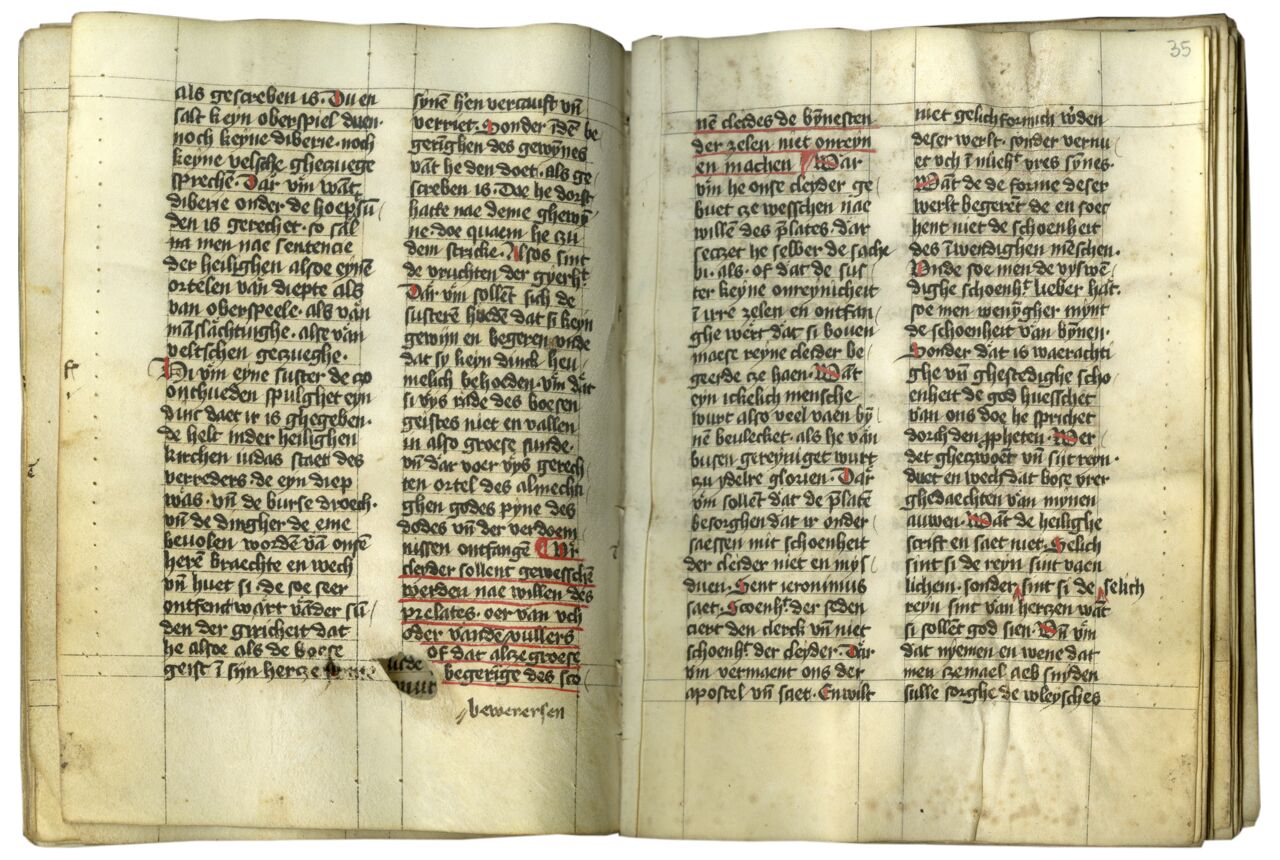 als gescreben is. Du en
salt keyn oberspiel duen.
noch keyne diberie. noch
keyne velsche ghezuege
sprechen. Dar vm wāt
diberie onder de hoepsū/
den is gerechet. so sal
na men nae sentencie
der heilighen alsoe eynē
ortelen van diepte als
van oberspeele. als van
māslachtinghe. alse van
veltschen gezueghe.
Di vm eyne suster de zo
onthueden spulghet eyn
dinc daet ir is ghegeben.
de helt inder heilighen
kirchen iudas staet des
verreders de eyn diep
was. vn̄ de burse droech.
vn̄ de dingher de eme
beuolen wordē vā onsē
herē braechte en wech
vn̄ huet si de soe seer
ontfent wart vāder sū/
den der giricheit dat
he alsoe als de boese
geist ī syn hertze
synē h'en vercauft vn̄
verriet. Sonder idē be
gerīghen des gewynes
vāt he den doet. als ge/
screben is. Doe he dorst
hatte nae deme ghewȳ/
ne. doe quaem he zu
dem stricke. Alsos sint
de vruchten der gyerht
Dar vm sollēt sich de
susteren hueden dat si keyn
gewijn en begeren vnde
dat sy keyn dinck heu/
melich behoeden. vm dat
si vys rade des boesen
geistes niet en vallen
in also groese sunde.
vn̄ dar voer vys gerech/
ten ortel des almechti
ghen godes pyne des
dodes vn̄ der verdoem
nissen ontfangē Vr
cleyder sollent gewesschē
werden nae willen des
prelates. oer van vch
oder vande vullers
of dat alze groese
begerige des sco/
bewerersen
35
nē cleides de bȳnesten
der zelen niet onreyn
en machen War
vm he onse cleyder ge/
buet cze wesschen nae
willē des p̄lates. dat
seczet he selber de sache
bi. als. of dat de sus/
ter keyne onreynicheit
ī irre zelen en ontfan/
ghe wert dat si bouen
maese reyne cleider be/
geerde cze haen. Wāt
eyn ickelich mensche
wurt also veel vaen bȳ/
nē beulecket. als he van
busen gereyniget wurt
zu ydelre glorien. Dar
vm sollent dat de p̄latē
besorghen dat ir onder/
saessen mit schoenheit
der cleider niet en mys/
duen. Sent ieronimus
saet. Scoenht der seden
ciert den clerck vn̄ niet
schoenht der cleyder. Dar
vm vermaent ons der
apostel vn̄ saet. En wilt
niet gelich formich wden
deser werlt. sonder vernu/
er vch ī nuicht vres synes.
Wāt de de forme deser
werlt begerēt de en soec/
hent niet de schoenheit
des īwerdighen mēschen.
Vnde soe men de vyswē/
dighe schoenht lieber hāt.
soe men wenygher mynt
de schoenheit van bȳnen.
Sonder dat is waerachti
ghe vn̄ ghestedighe scho/
enheit de god huesschet
van ons doe he sprichet
dorch den ppheten. Wer/
det ghezwoet vn̄ sūt reyn.
duet en wech dat bose vrer
ghedaechten van mynen
auwen. Wāt de heilighe
scrift en saet niet. Selich
sint si de reyn sint vaen
lichem. sonder sint si de selich
reyn sint van hertzen wāt
si sollēt god sien. Vn̄ vm
dat nyemen en wene dat
men zemael aeb snyden
sulle sorghe de wleysches